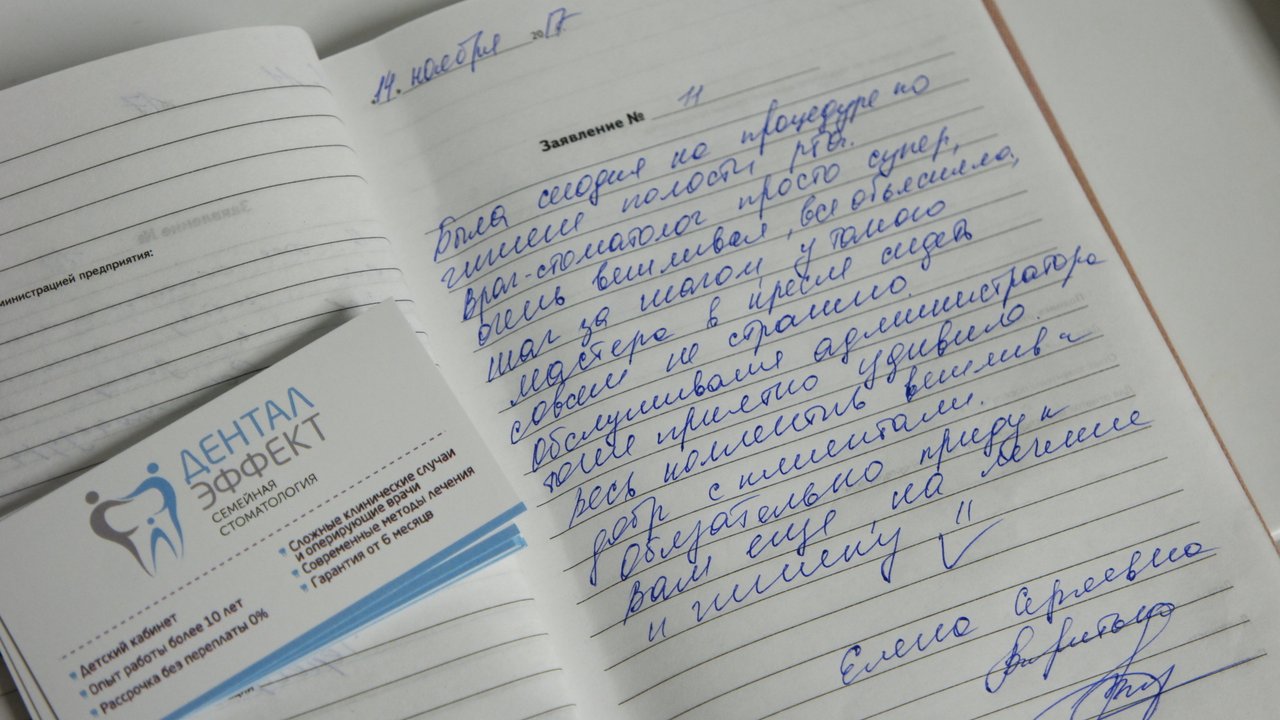 министрацией предприятия:
ДЕНТАЛ
ЭФФЕКТ
СЕМЕЙНАЯ
СТОМАТОЛОГИЯ
Сложные клинические случаи
и оперирующие врачи
Современные методы лечения
Гарантия от 6 месяцв
Детский кабинет
Опыт работы более 10 лет
Рассрочка без переплаты 0%
14. ноября 2017
Заявление № 11
Была сегодня на процедуре по
гигиене полости рта.
Врач-стоматолог просто супер,
очень вежливая, все объясняла,
шаг за шагом, у такого
мастера в кресле сидеть
совсем не страшно
Обслуживания администратора
тоже приятно удивило.
Весь коллектив вежлив и
добр с клиентами.
Обязательно приду к
Вам еще на лечение
и гигиену "
Елена Сергеевна